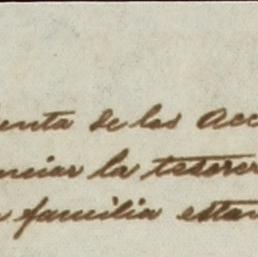 enta de los Acc
nciar la tesorer
familia estar